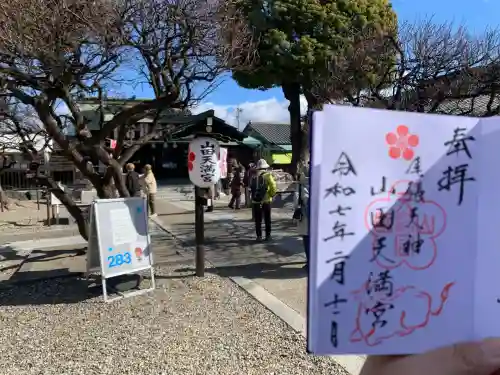 山田天満宮
283
奉拝
尾張天神
山田天満宮
令和七年二月